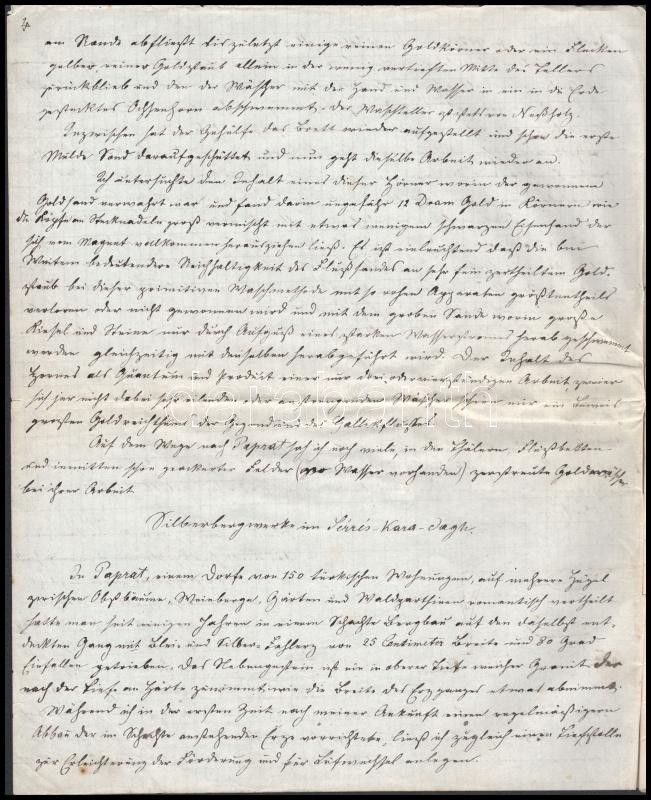 am Rande abfließt bis zuletzt einige reinen Goldkörner oder ein Flecken
gelber reiner Goldstaub allein in der wenig vertieften Mitte des Tellers
zurückblieb und den der Wäscher mit der Hand und Wasser in ein in die Erde
gestecktes Ochsenhorn abschwemmt. Der Waschteller ist stets von Nußholz.
Inzwischen hat der Gehülfe das Brett wieder aufgestellt und schon die erste
Mulde Sand daraufgeschüttet und nun geht dieselbe Arbeit wieder an.
Ich untersuchte den Inhalt eines dieser Hörner worin der gewonnene
Goldsand verwahrt war und fand darin ungefähr 12 Dram Gold in Körnern wie
die Köpfe an Stecknadeln groß vermischt mit etwas wenigem schwarzen Eisensand der
sich vom Magnet vollkommen herausziehen ließ. Es ist einleuchtend daß die bei
Weitem bedeutendere Reichhaltigkeit des Flußsandes an sehr fein zertheiltem Gold-
staub bei dieser primitiven Waschmethode mit so rohen Apparaten größtentheils
verloren oder nicht gewonnen wird und mit dem groben Sande worin große
Kiesel und Steine nur durch Aufguß eines starken Wasserstroms herab geschwemmt
werden gleichzeitig mit denselben herabgeführt wird. Der Inhalt des
Hornes als Quantum und Produkt einer nur drei oder vierstündigen Arbeit zweier
sich gar nicht dabei sehr eilenden oder anstrengenden Wäscher schien mir ein Beweis
großen Goldreichthums der Gegend und des Gallikoflusses.
Auf dem Wege nach Paprat sah ich noch viele in den Thälern, Flußbetten
und inmitten schon geackerter Felder (wo Wasser vorhanden) zerstreute Goldwäscher
bei ihrer Arbeit
Silberbergwerke im Sérrés-Kara-Dagh.
In Paprat, einem Dorfe von 150 türkischen Wohnungen, auf mehrere Hügel
zwischen Obstbäume, Weinberge, Gärten und Waldparthieen romantisch vertheilt
hatte man seit einigen Jahren in einem Schachte Bergbau auf den daselbst ent-
deckten Gang mit Blei- und Silber-Fahlerz von 25 Centimeter Breite und 80 Grad
Einfallen getrieben. Das Nebengestein ist ein in oberer Teufe weicher Granit der
nach der Tiefe an Härte zunimmt wie die Breite des Erzganges etwas abnimmt.
Während ich in der ersten Zeit nach meiner Ankunft einen regelmäßigern
Abbau der im Schachte anstehenden Erze vorrichtete, ließ ich zugleich einen Tiefstollen
zur Erleichterung der Förderung und für Luftwechsel anlegen.